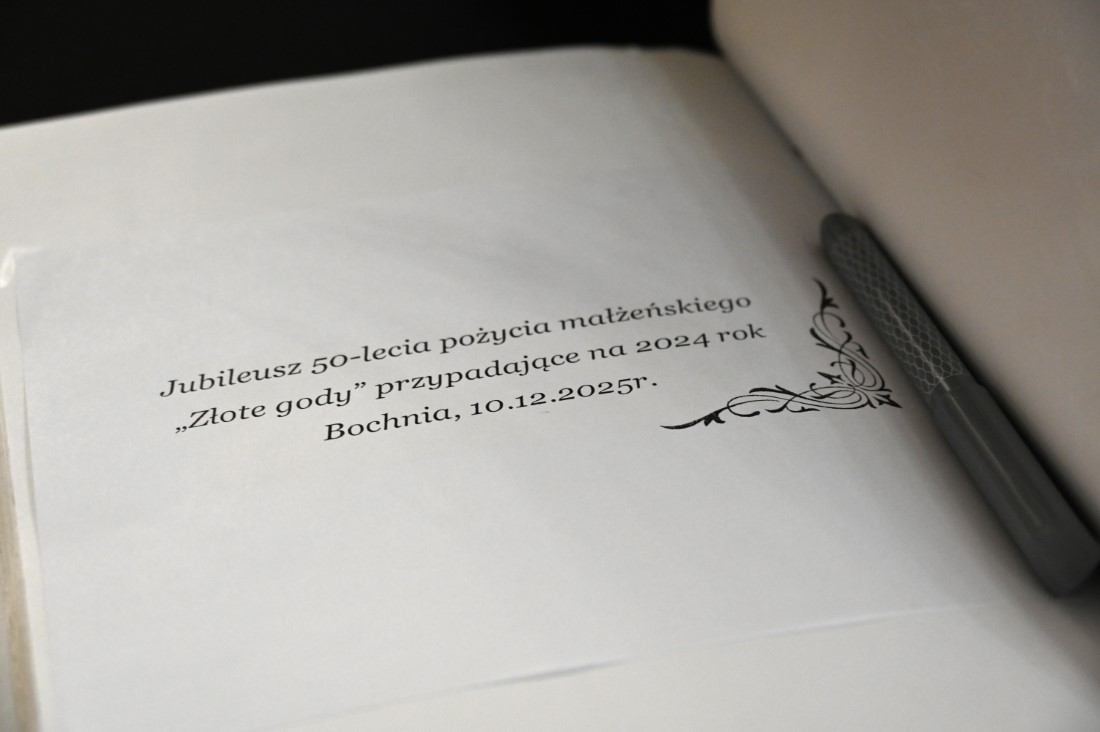 Jubileusz 50-lecia pożycia małżeńskiego
„Złote gody” przypadające na 2024 rok
Bochnia, 10.12.2025r.